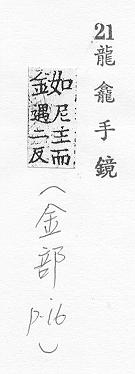 21 龍龕手鏡
銣尼主而
遇二反
(金部
p.16)